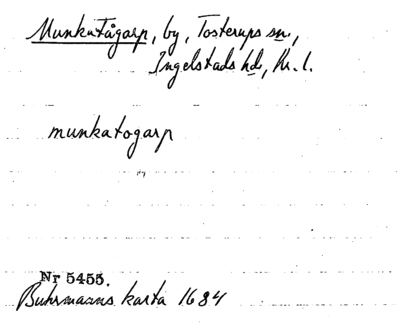 Munkatågarp, by, Tosterups sn.,
Ingelstads hd., Kr. l.
munkatogarp
Nr 5455.
Buhrmanns karta 1684